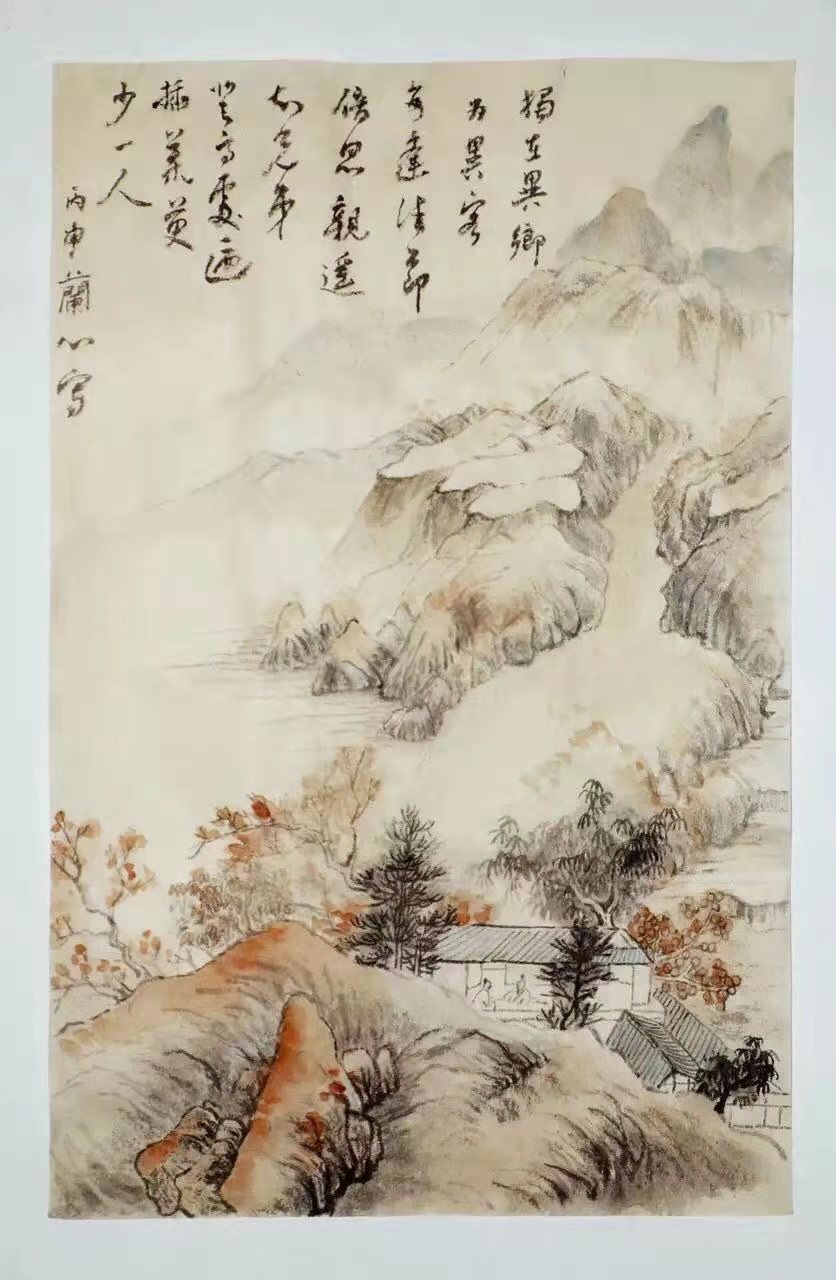 獨在異鄉
为異客
每逢佳節
倍思親遥
知兄弟
登高處遍
插茱萸
少一人
丙申蘭心写